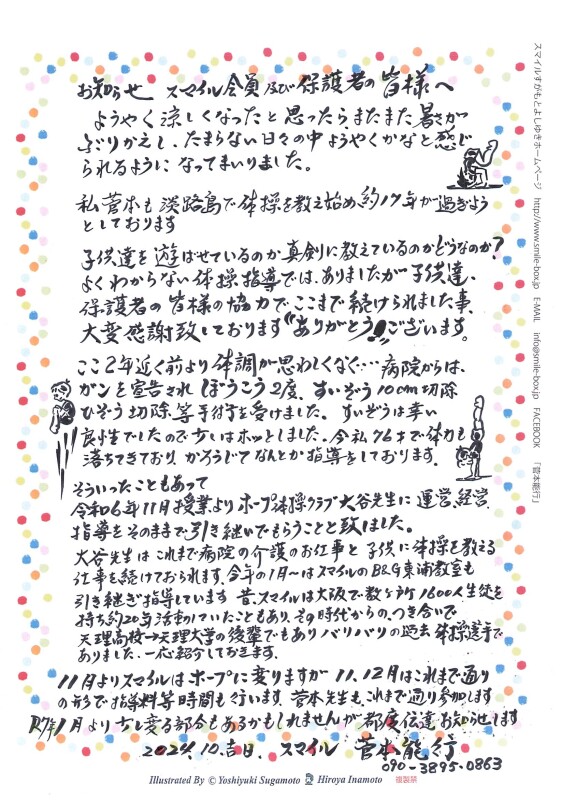 お知らせ スマイル会員及び保護者の皆様へ
ようやく涼しくなったと思ったらまたまた暑さが
ぶりかえし、たまらない日々の中ようやくかなと感じ
られるようになってまいりました。
私菅本も淡路島で体操を教え始め約17年が過ぎよう
としております
子供達を遊ばせているのか真剣に教えているのかどうなのか?
よくわからない体操指導では、ありましたが子供達、
保護者の皆様の協力でここまで続けられました事、
大変感謝致しております“ありがとう!!ございます。
ここ2年近く前より体調が思わしくなく・・・・病院からは、
ガンを宣告され ぼうこう2度、すいぞう10cm切除
ひぞう切除、等手術を受けました。すいぞうは幸い
良性でしたので少しはホッとしました。今私76才で体力も
落ちてきており、かろうじてなんとか指導をしております。
そういったこともあって
令和6年11月授業よりホープ体操クラブ大谷先生に運営、経営、
指導をそのままで引き継いでもらうことと致しました。
大谷先生はこれまで病院の介護のお仕事と子供に体操を教える
仕事を続けておられます。今年の1月〜はスマイルのB&G東浦教室も
引き継ぎ指導しています 昔、スマイルは大阪で数ヶ所1600人生徒を
持ち約20年活動していたこともあり、その時代からのつき合いで
天理高校→天理大学の後輩でもありバリバリの過去体操選手で
ありました。一応紹介しておきます。
11月よりスマイルはホープに変りますが11、12月はこれまで通り
の形で指導料等時間も行います 菅本先生も、これまで通り参加します
R7年1月より少し変る部分もあるかもしれませんが都度伝達お知らせします
2024.10.吉日. スマイル 菅本能行
090-3895-0863
Illustrated By © Yoshiyuki Sugamoto Hiroya Inamoto 複製禁
スマイルすがもとよしゆきホームページ http://www.smile-box.jp E-MAIL info@smile-box.jp FACEBOOK 「菅本能行」